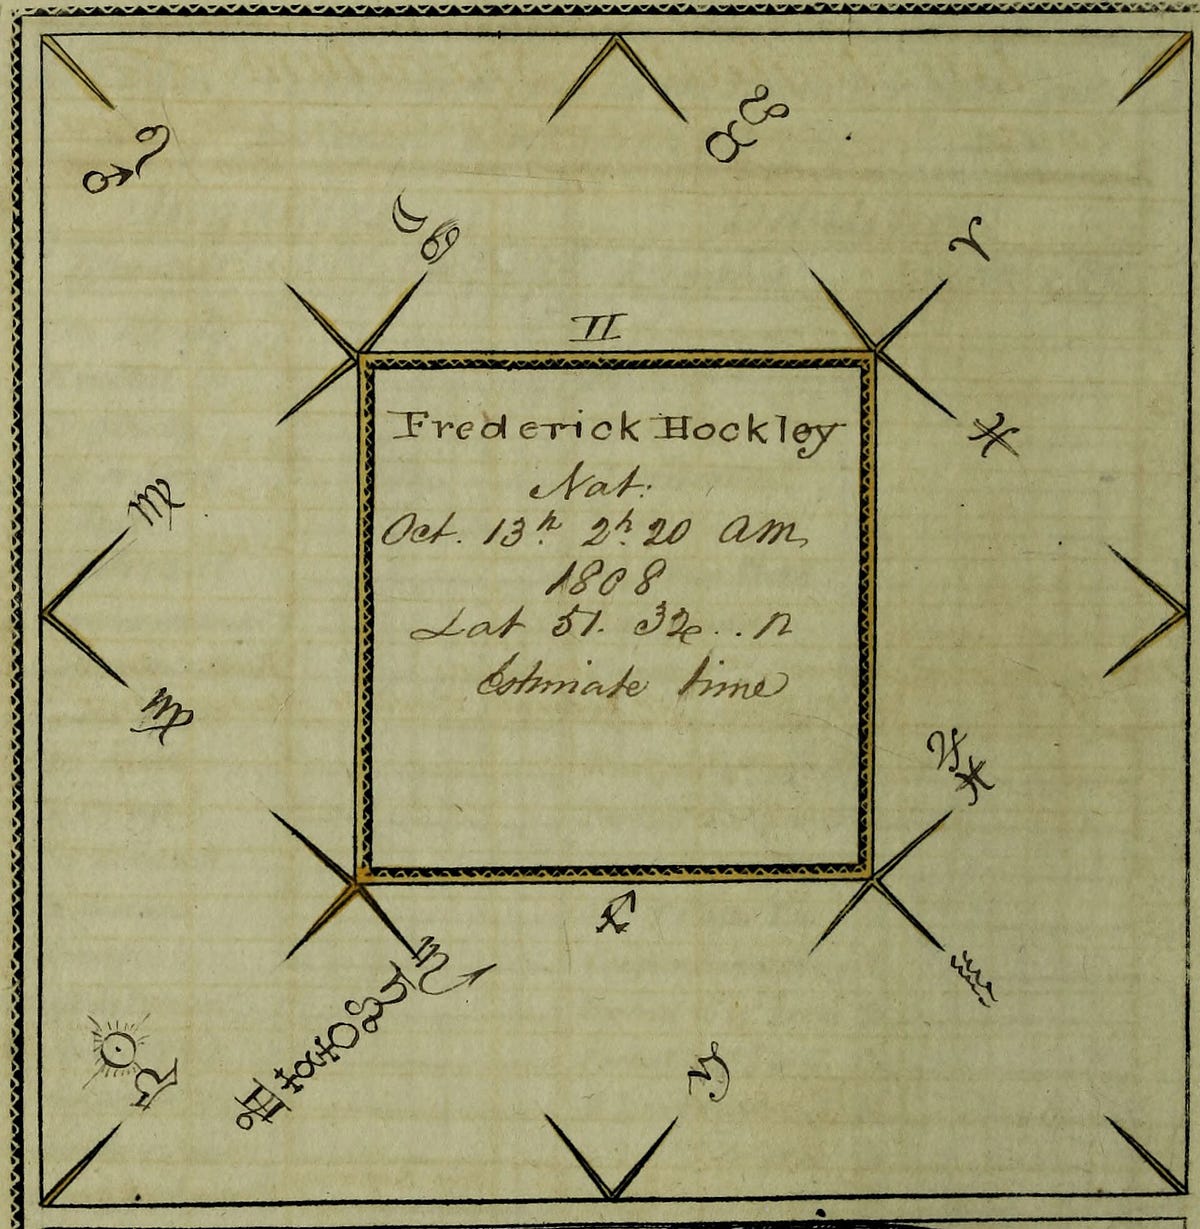 ♂ ♌
☊ ♉
☽ ♋
♈
♊
♓
Frederick Hockley
Nat:
Oct. 13th 2h. 20 am
1808
Lat 51. 32 .. n
Estimate time
♍
♍
♃ ♓
♐
♒
☉ ♎
♑